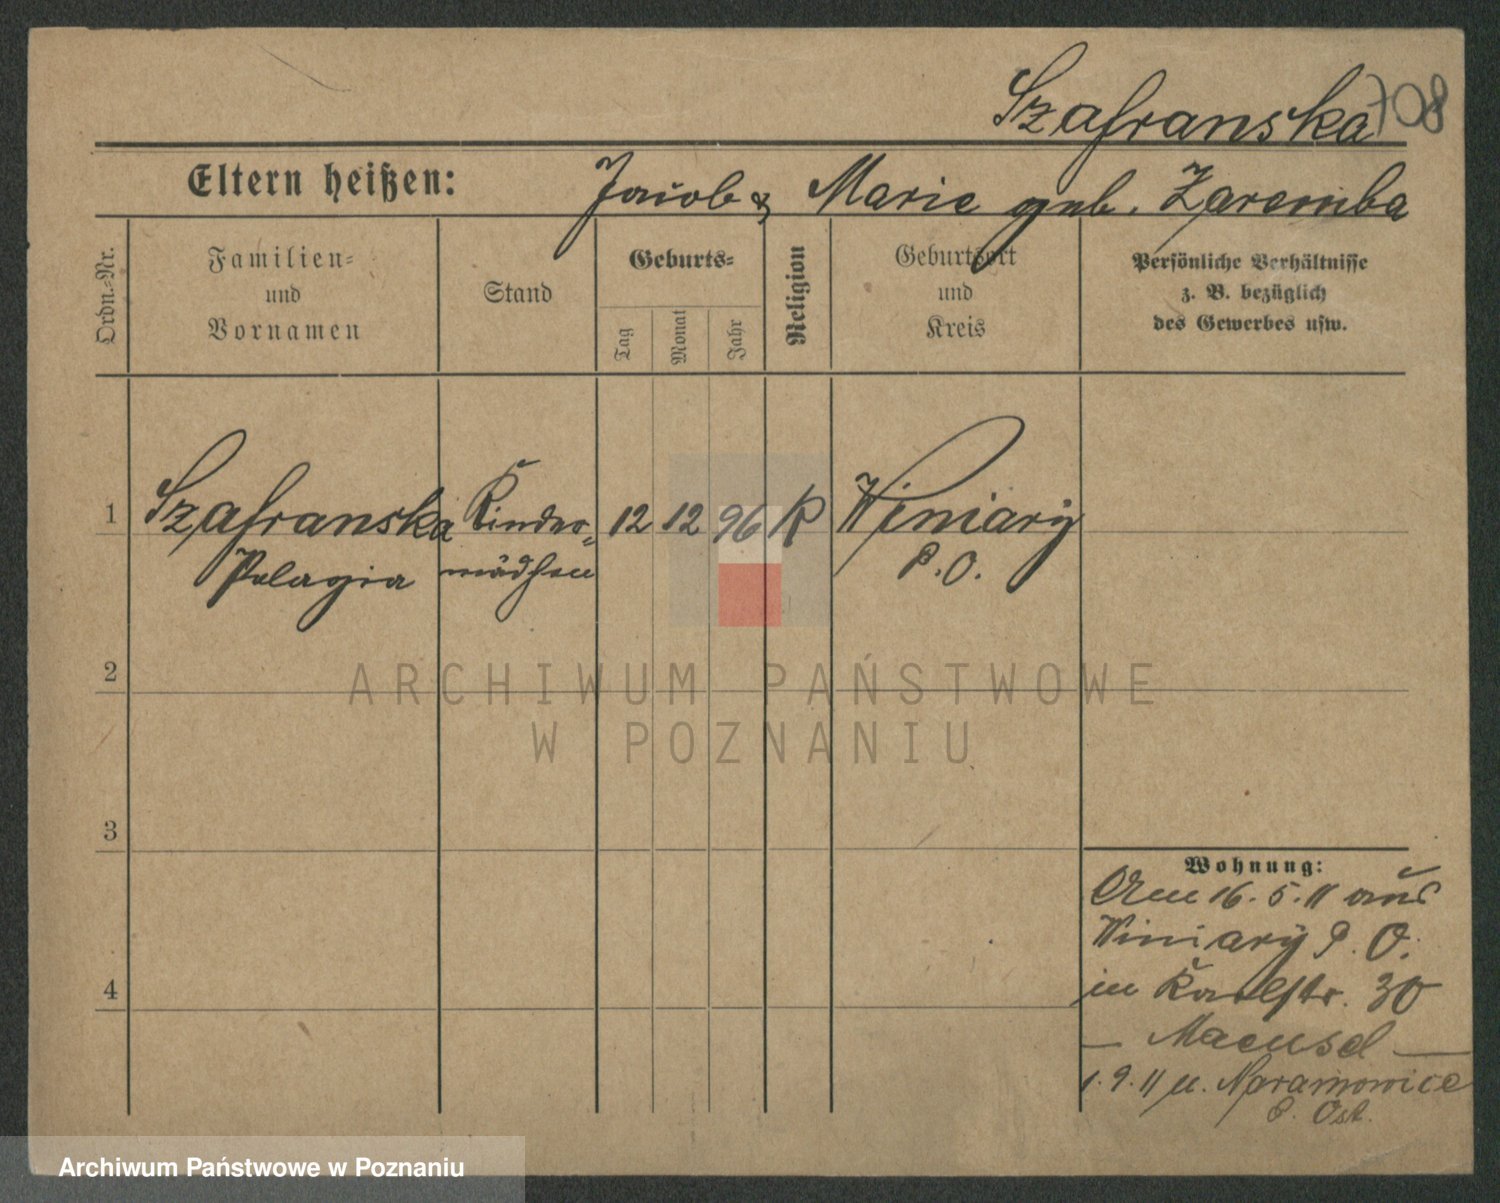 Szafranska 708
Eltern heißen: Jacob & Marie geb. Zaremba
Ordn.-Nr.
Familien-
und
Vornamen
Stand
Geburts-
Tag
Monat
Jahr
Religion
Geburtsort
und
Kreis
Persönliche Verhältnisse
z. B. bezüglich
des Gewerbes usw.
1 Szafranska Kinder- 12 12 96 K Winiary
Pelagia mädchen P. O.
2
3
4
Wohnung:
Am 16. 5. 11 aus
Winiary P. O.
in Karlstr. 30
— Maeusel —
1. 9. 11 n. Naramowice
P. Ost.
ARCHIWUM PAŃSTWOWE
W POZNANIU
Archiwum Państwowe w Poznaniu